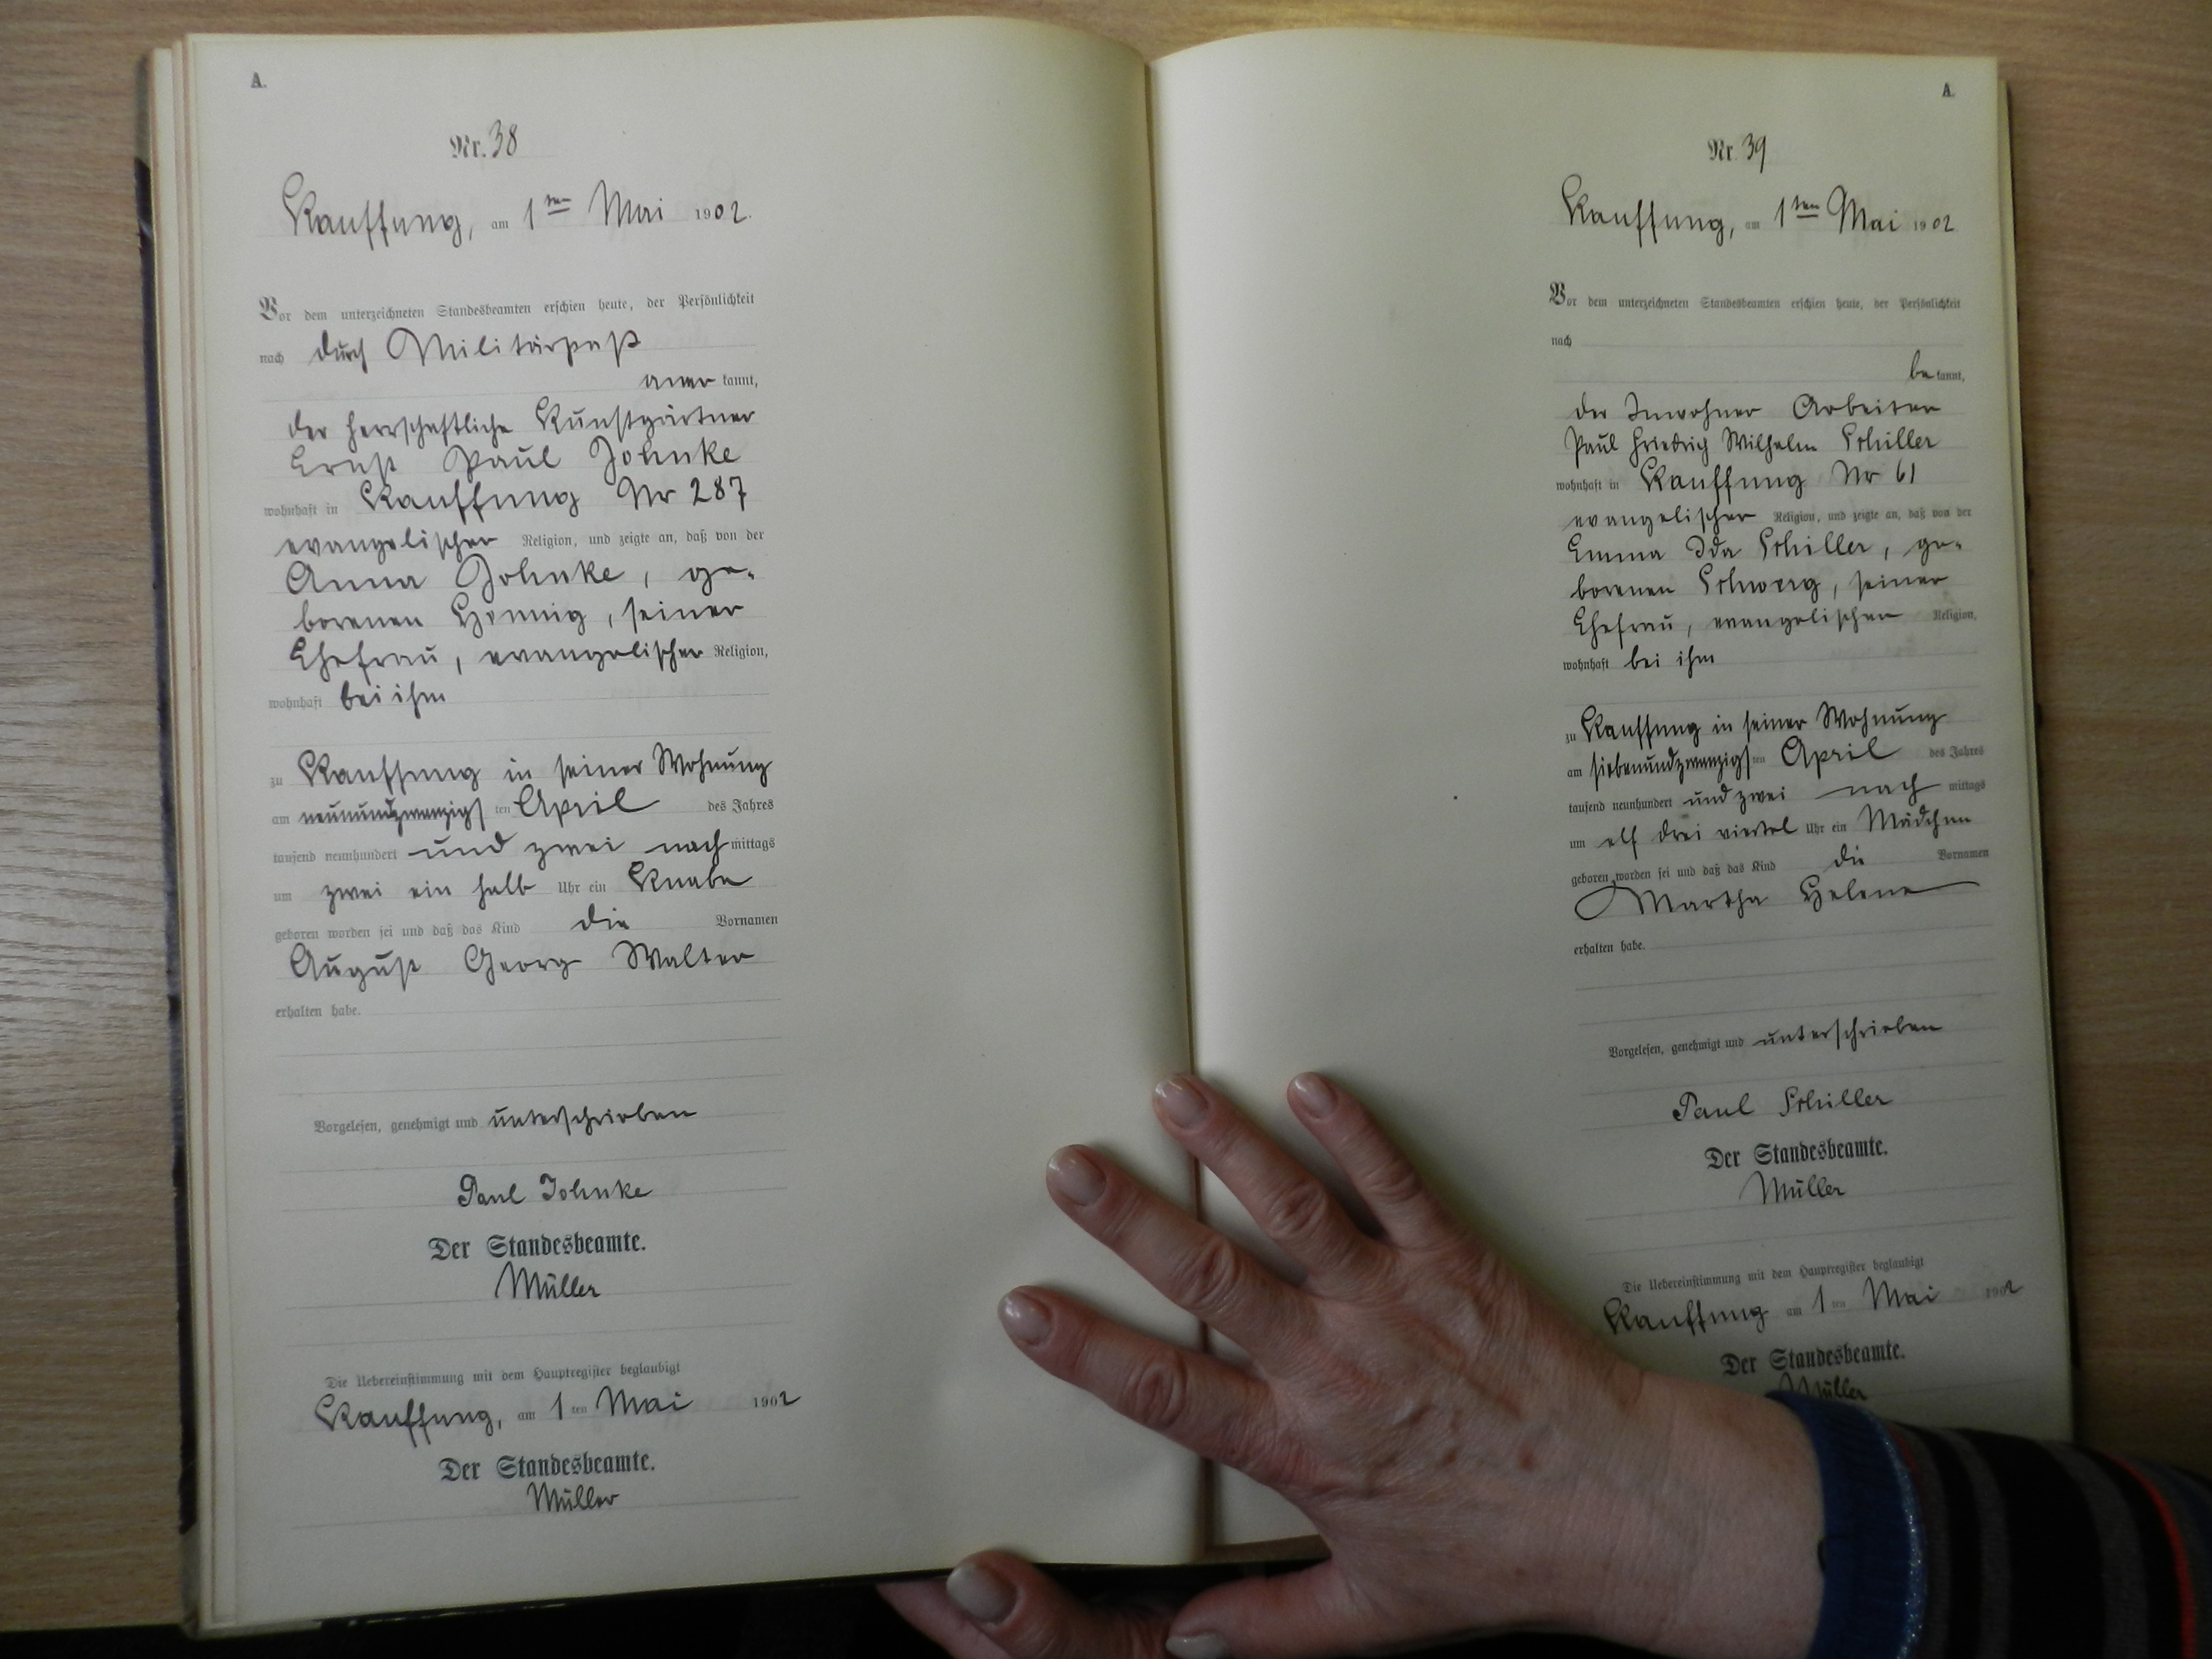 A.
Nr. 38
Kauffung, am 1ten Mai 1902.
Vor dem unterzeichneten Standesbeamten erschien heute, der Persönlichkeit
nach durch Militärpaß
aner kannt,
der herrschaftliche Kunstgärtner
Ernst Paul Johnke
wohnhaft in Kauffung Nr 287
evangelischer Religion, und zeigte an, daß von der
Anna Johnke, ge-
borenen Hennig, seiner
Ehefrau, evangelischer Religion,
wohnhaft bei ihm
zu Kauffung in seiner Wohnung
am neunundzwanzigsten April des Jahres
tausend neunhundert und zwei nachmittags
um zwei ein halb Uhr ein Knabe
geboren worden sei und daß das Kind die Vornamen
August Georg Walter
erhalten habe.
Vorgelesen, genehmigt und unterschrieben
Paul Johnke
Der Standesbeamte.
Müller
Die Uebereinstimmung mit dem Hauptregister beglaubigt
Kauffung, am 1ten Mai 1902
Der Standesbeamte.
Müller
A.
Nr. 39
Kauffung, am 1ten Mai 1902
Vor dem unterzeichneten Standesbeamten erschien heute, der Persönlichkeit
nach
be kannt,
der Inwohner Arbeiter
Paul Friedrich Wilhelm Schiller
wohnhaft in Kauffung Nr 61
evangelischer Religion, und zeigte an, daß von der
Emma Ida Schiller, ge-
borenen, seiner
Ehefrau, evangelischer Religion,
wohnhaft bei ihm
zu Kauffung in seiner Wohnung
am siebenundzwanzigsten April des Jahres
tausend neunhundert und zwei nachmittags
um elf drei viertel Uhr ein Mädchen
geboren worden sei und daß das Kind die Vornamen
Martha Helene
erhalten habe.
Vorgelesen, genehmigt und unterschrieben
Paul Schiller
Der Standesbeamte.
Müller
Die Uebereinstimmung mit dem Hauptregister beglaubigt
Kauffung am 1ten Mai 1902
Der Standesbeamte.
Müller